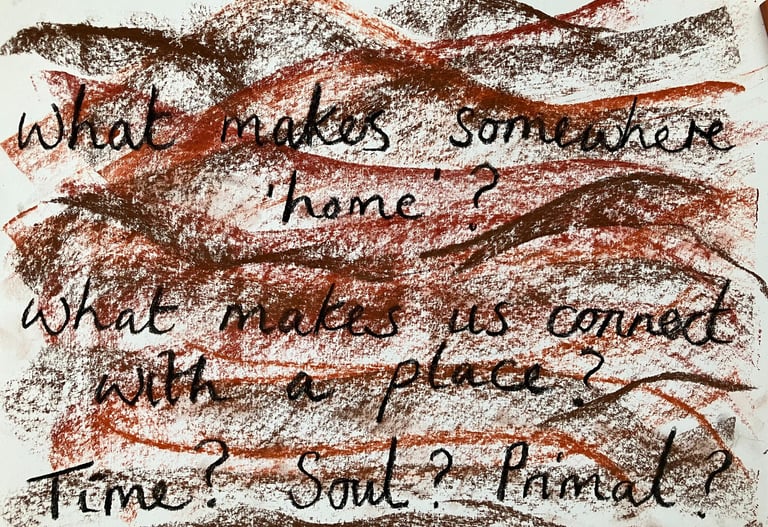 What makes somewhere
'home'?
What makes us connect
with a place?
Time? Soul? Primal?